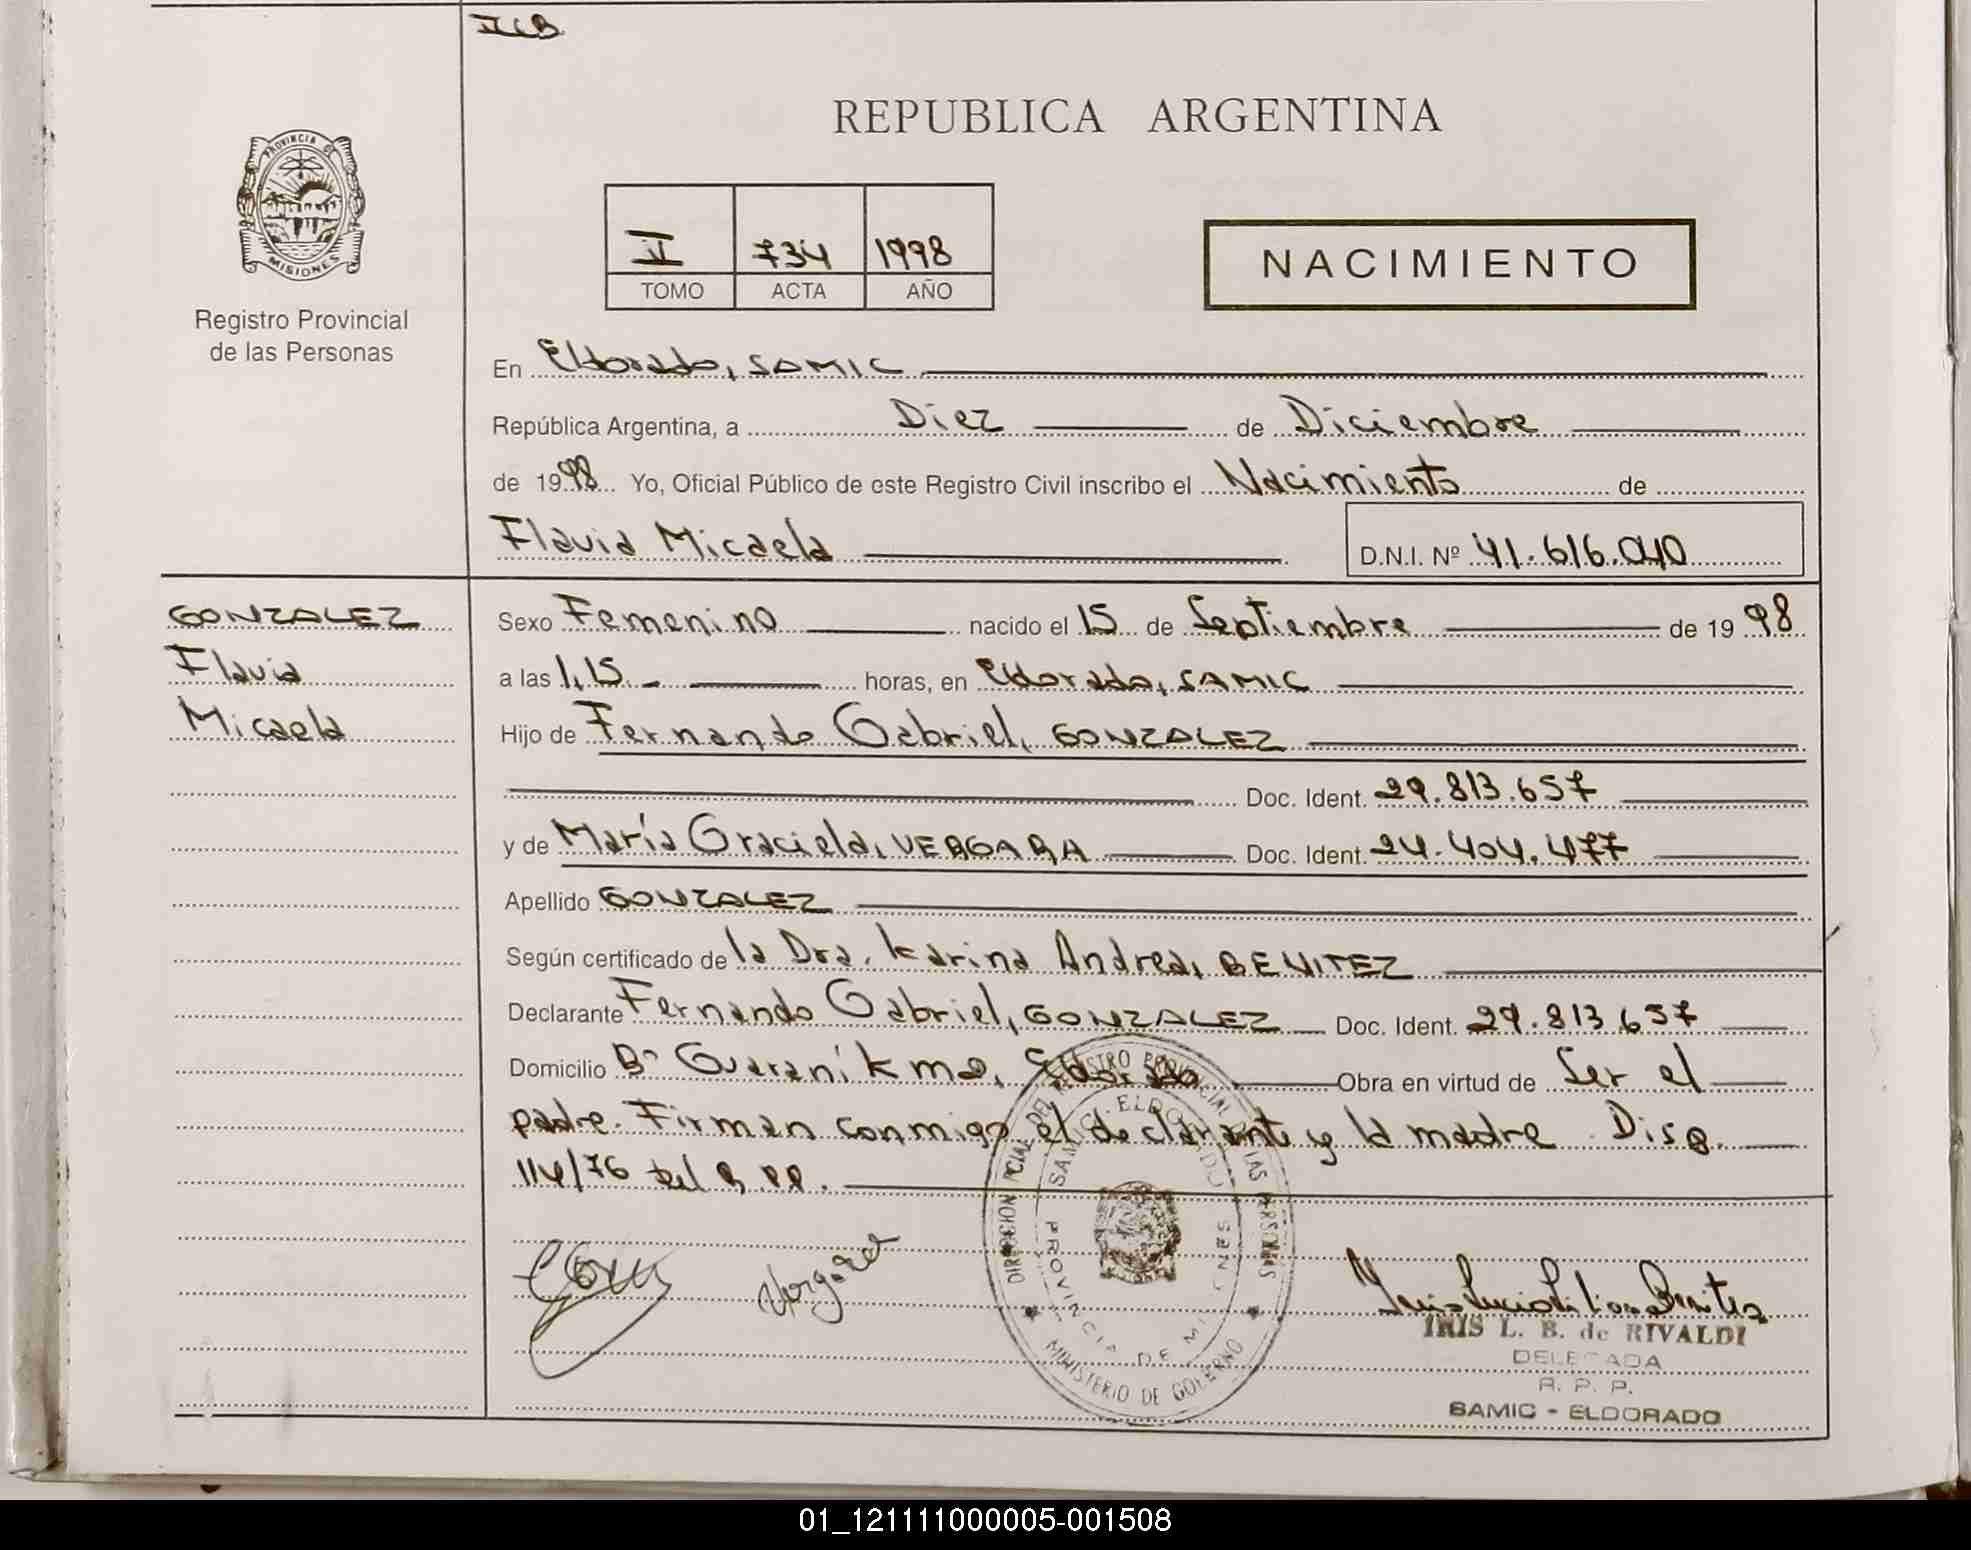 REPUBLICA ARGENTINA
PROVINCIA DE
MISIONES
Registro Provincial
de las Personas
II 734 1998
TOMO ACTA AÑO
NACIMIENTO
En Eldorado, SAMIC
República Argentina, a Diez de Diciembre
de 1998 Yo, Oficial Público de este Registro Civil inscribo el Nacimiento de
Flavia Micaela D.N.I. Nº 41.616.040
GONZALEZ
Flavia
Micaela
Sexo Femenino nacido el 15 de Septiembre de 1998
a las 1,15 horas, en Eldorado, SAMIC
Hijo de Fernando Gabriel, GONZALEZ
Doc. Ident. 29.813.657
y de María Graciela, VERGARA Doc. Ident. 24.404.477
Apellido GONZALEZ
Según certificado de la Dra. Karina Andrea, BENITEZ
Declarante Fernando Gabriel, GONZALEZ Doc. Ident. 29.813.657
Domicilio Bº Guaraní km Eldorado Obra en virtud de Ser el
padre. Firman conmigo el declarante y la madre Disp.
114/76 del R.P.P.
Vergara
DIRECCION PCIAL DEL REGISTRO PROVINCIAL DE LAS PERSONAS
SAMIC ELDORADO
PROVINCIA DE MISIONES
MINISTERIO DE GOBIERNO
IRIS L. B. de RIVALDI
DELEGADA
R. P. P.
SAMIC - ELDORADO
01_121111000005-001508